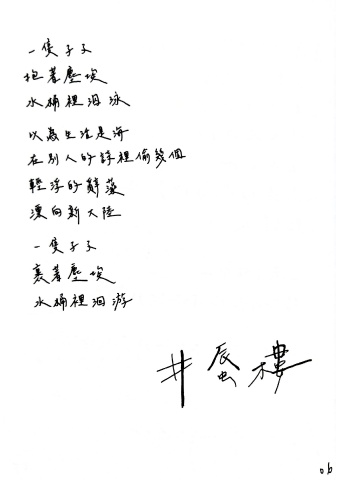 一隻孑孓
抱著塵埃
水桶裡洄泳
以為生活是海
在別人的詩裡偷幾個
輕浮的辭藻
漂向新大陸
一隻孑孓
裹著塵埃
水桶裡洄游
井蜃樓
06